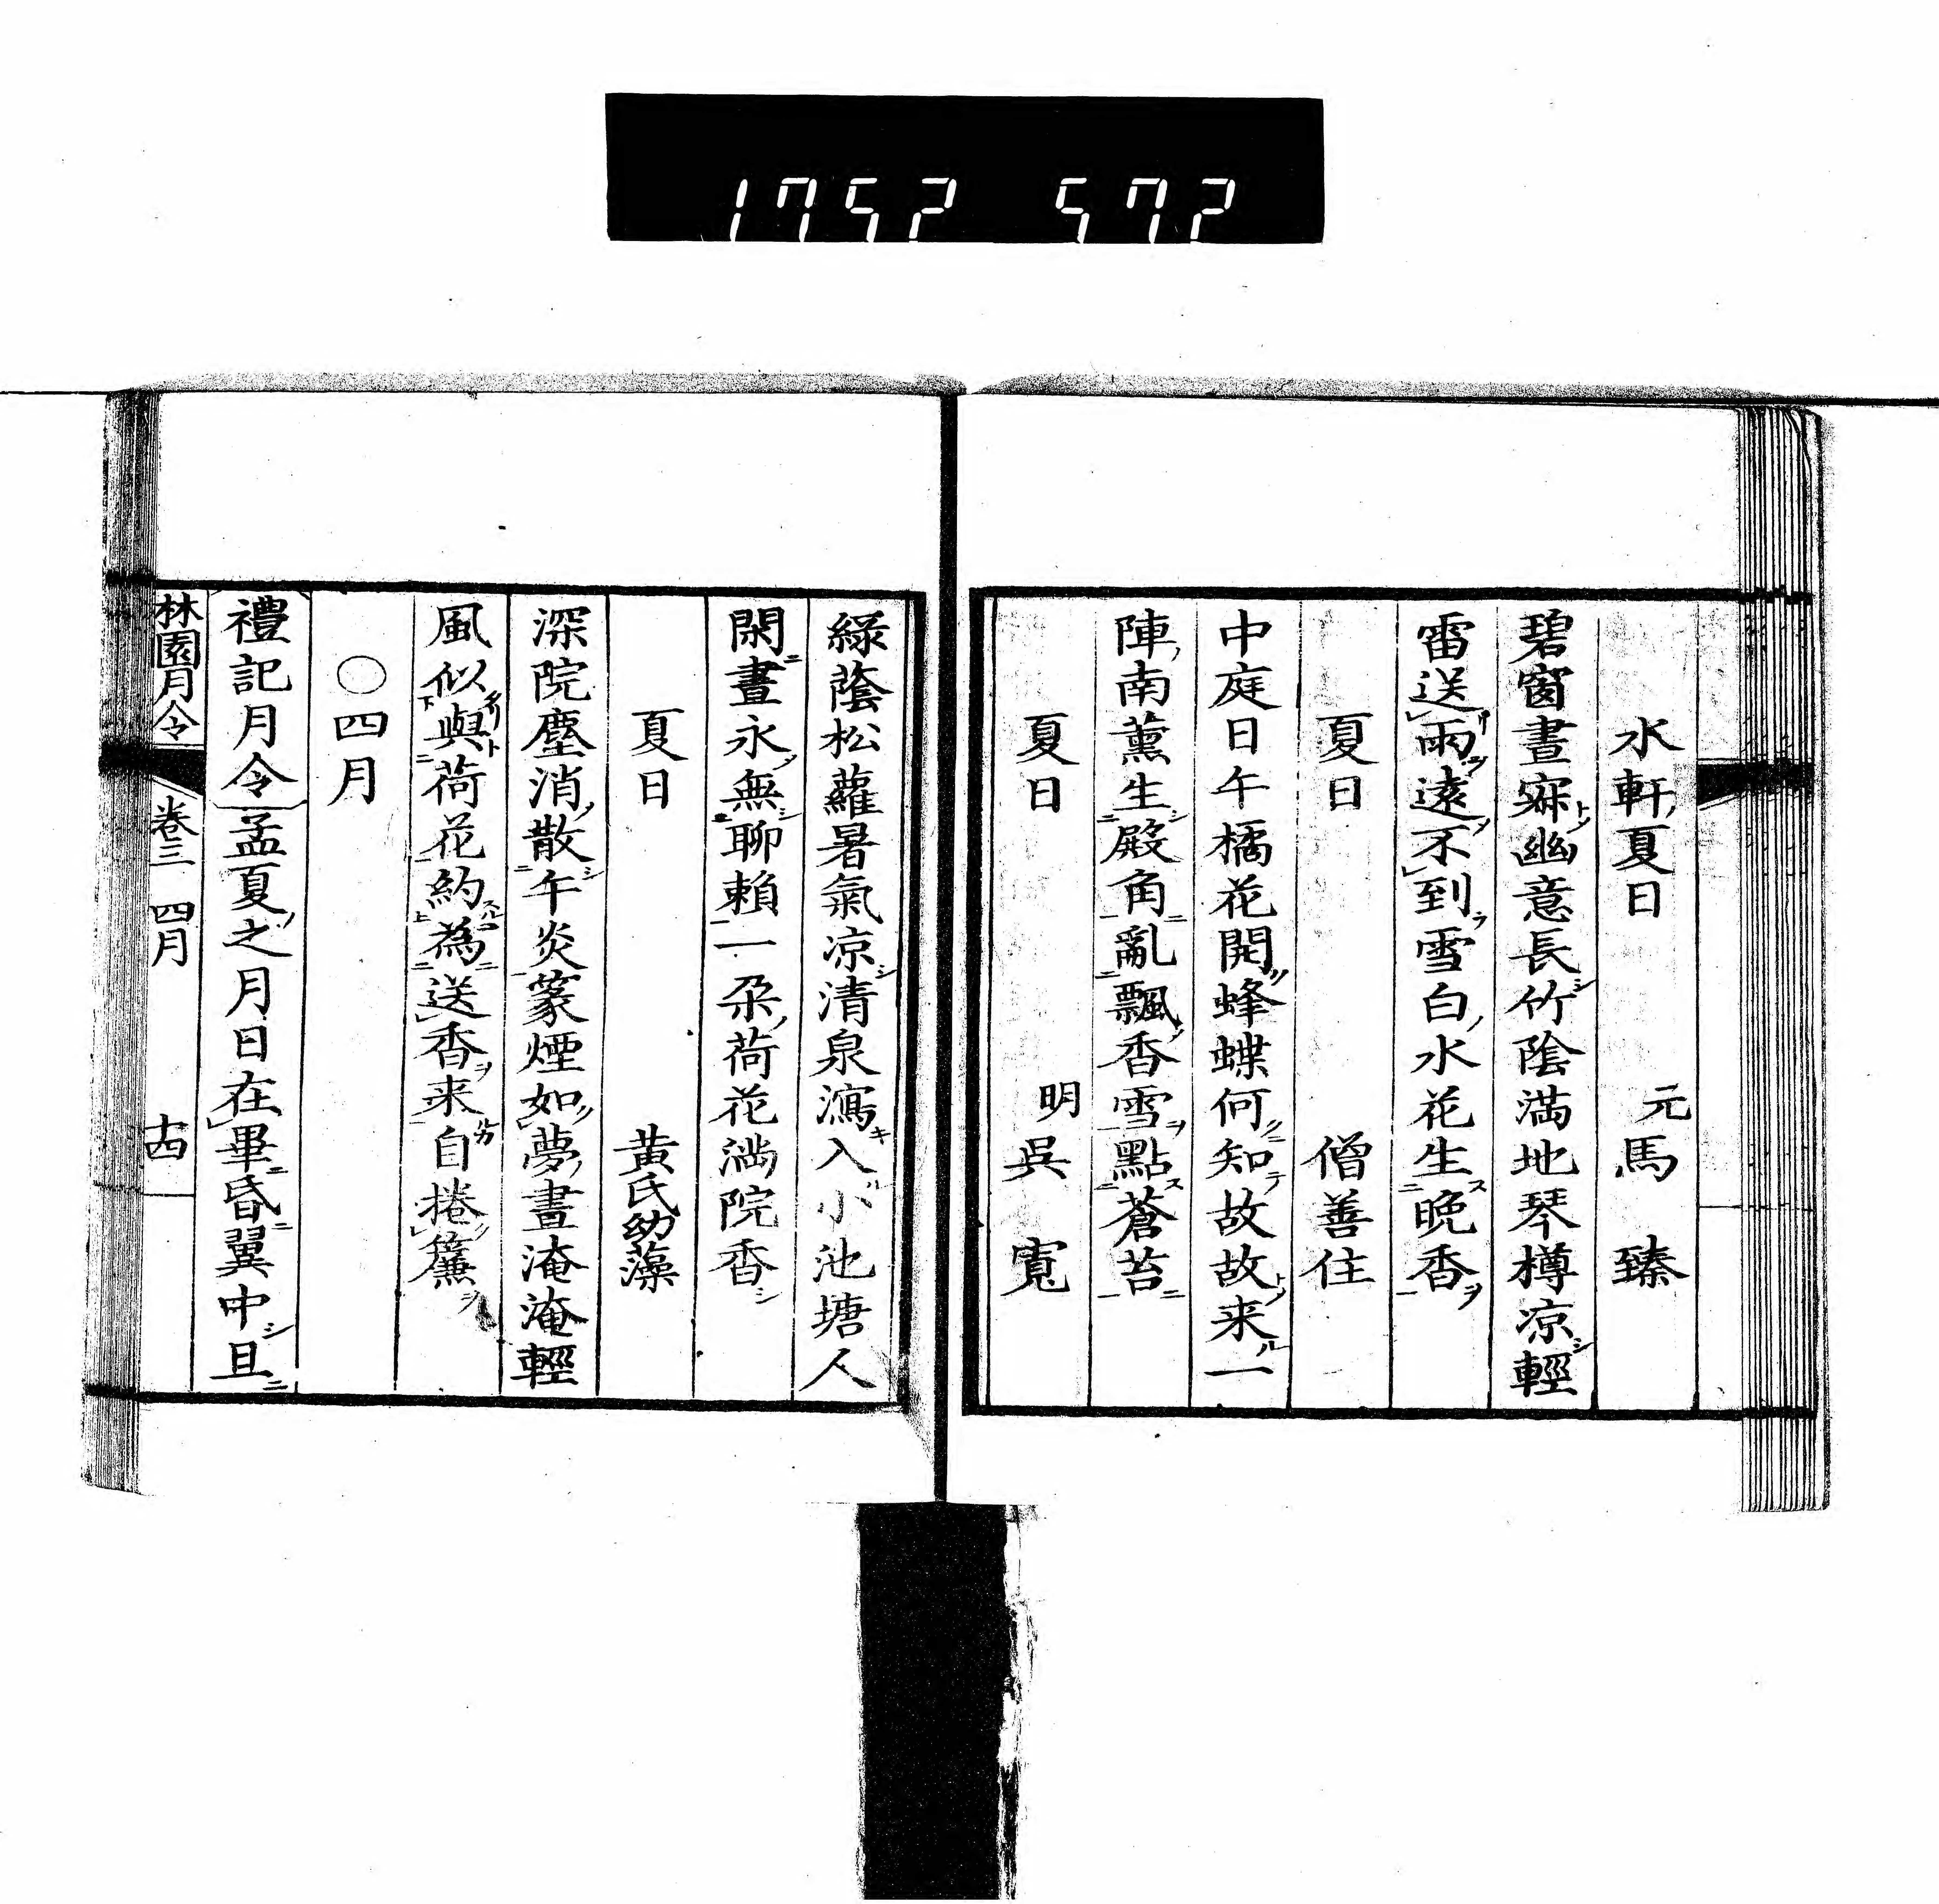 1752 572
水軒夏日 元 馬 臻
碧窗晝寂幽意長竹陰滿地琴樽凉輕
雷送雨遠不到雪白水花生晩香
夏日 僧善住
中庭日午橘花開蜂蝶何知故故来一
陣南薫生殿角亂飄香雪點蒼苔
夏日 明 吳 寬
緑蔭松蘿暑氣凉清泉瀉入小池塘人
閑晝永無聊賴一朶荷花滿院香
夏日 黄氏幼藻
深院塵消散午炎篆煙如夢晝淹淹輕
風似與荷花約為送香来自捲簾
○四月
禮記月令孟夏之月日在畢昏翼中旦
林園月令 卷三 四月 十四